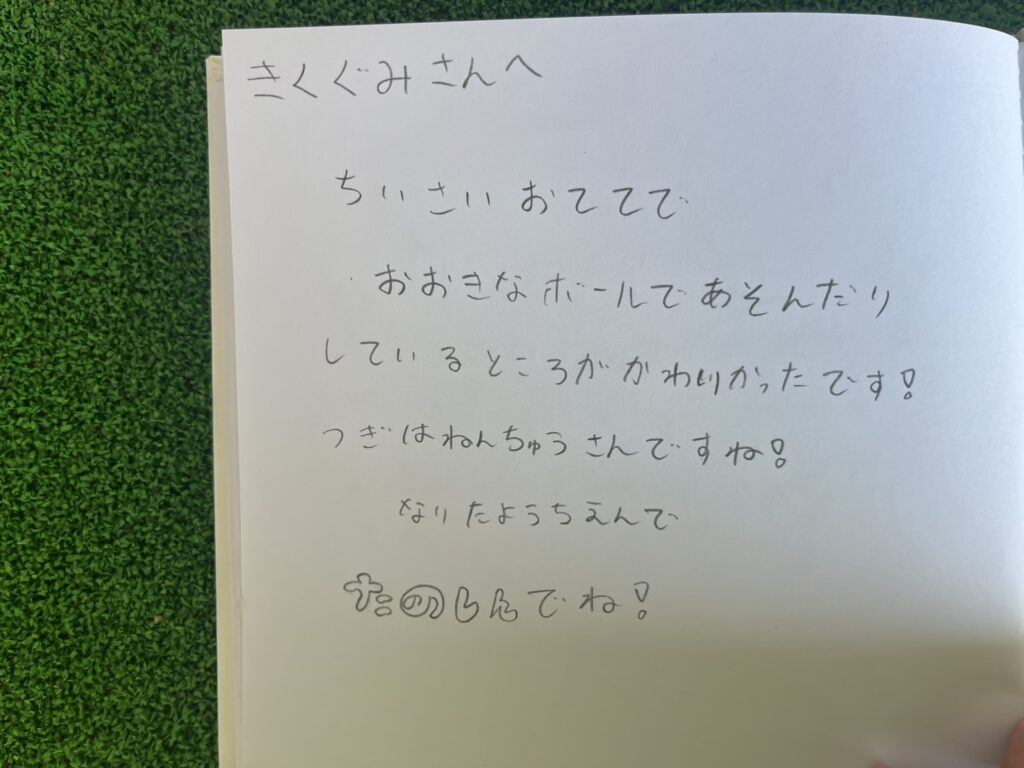 きくぐみさんへ
ちいさいおててで
おおきなボールであそんだり
しているところがかわいかったです!
つぎはねんちゅうさんですね!
なりたようちえんで
たのしんでね!